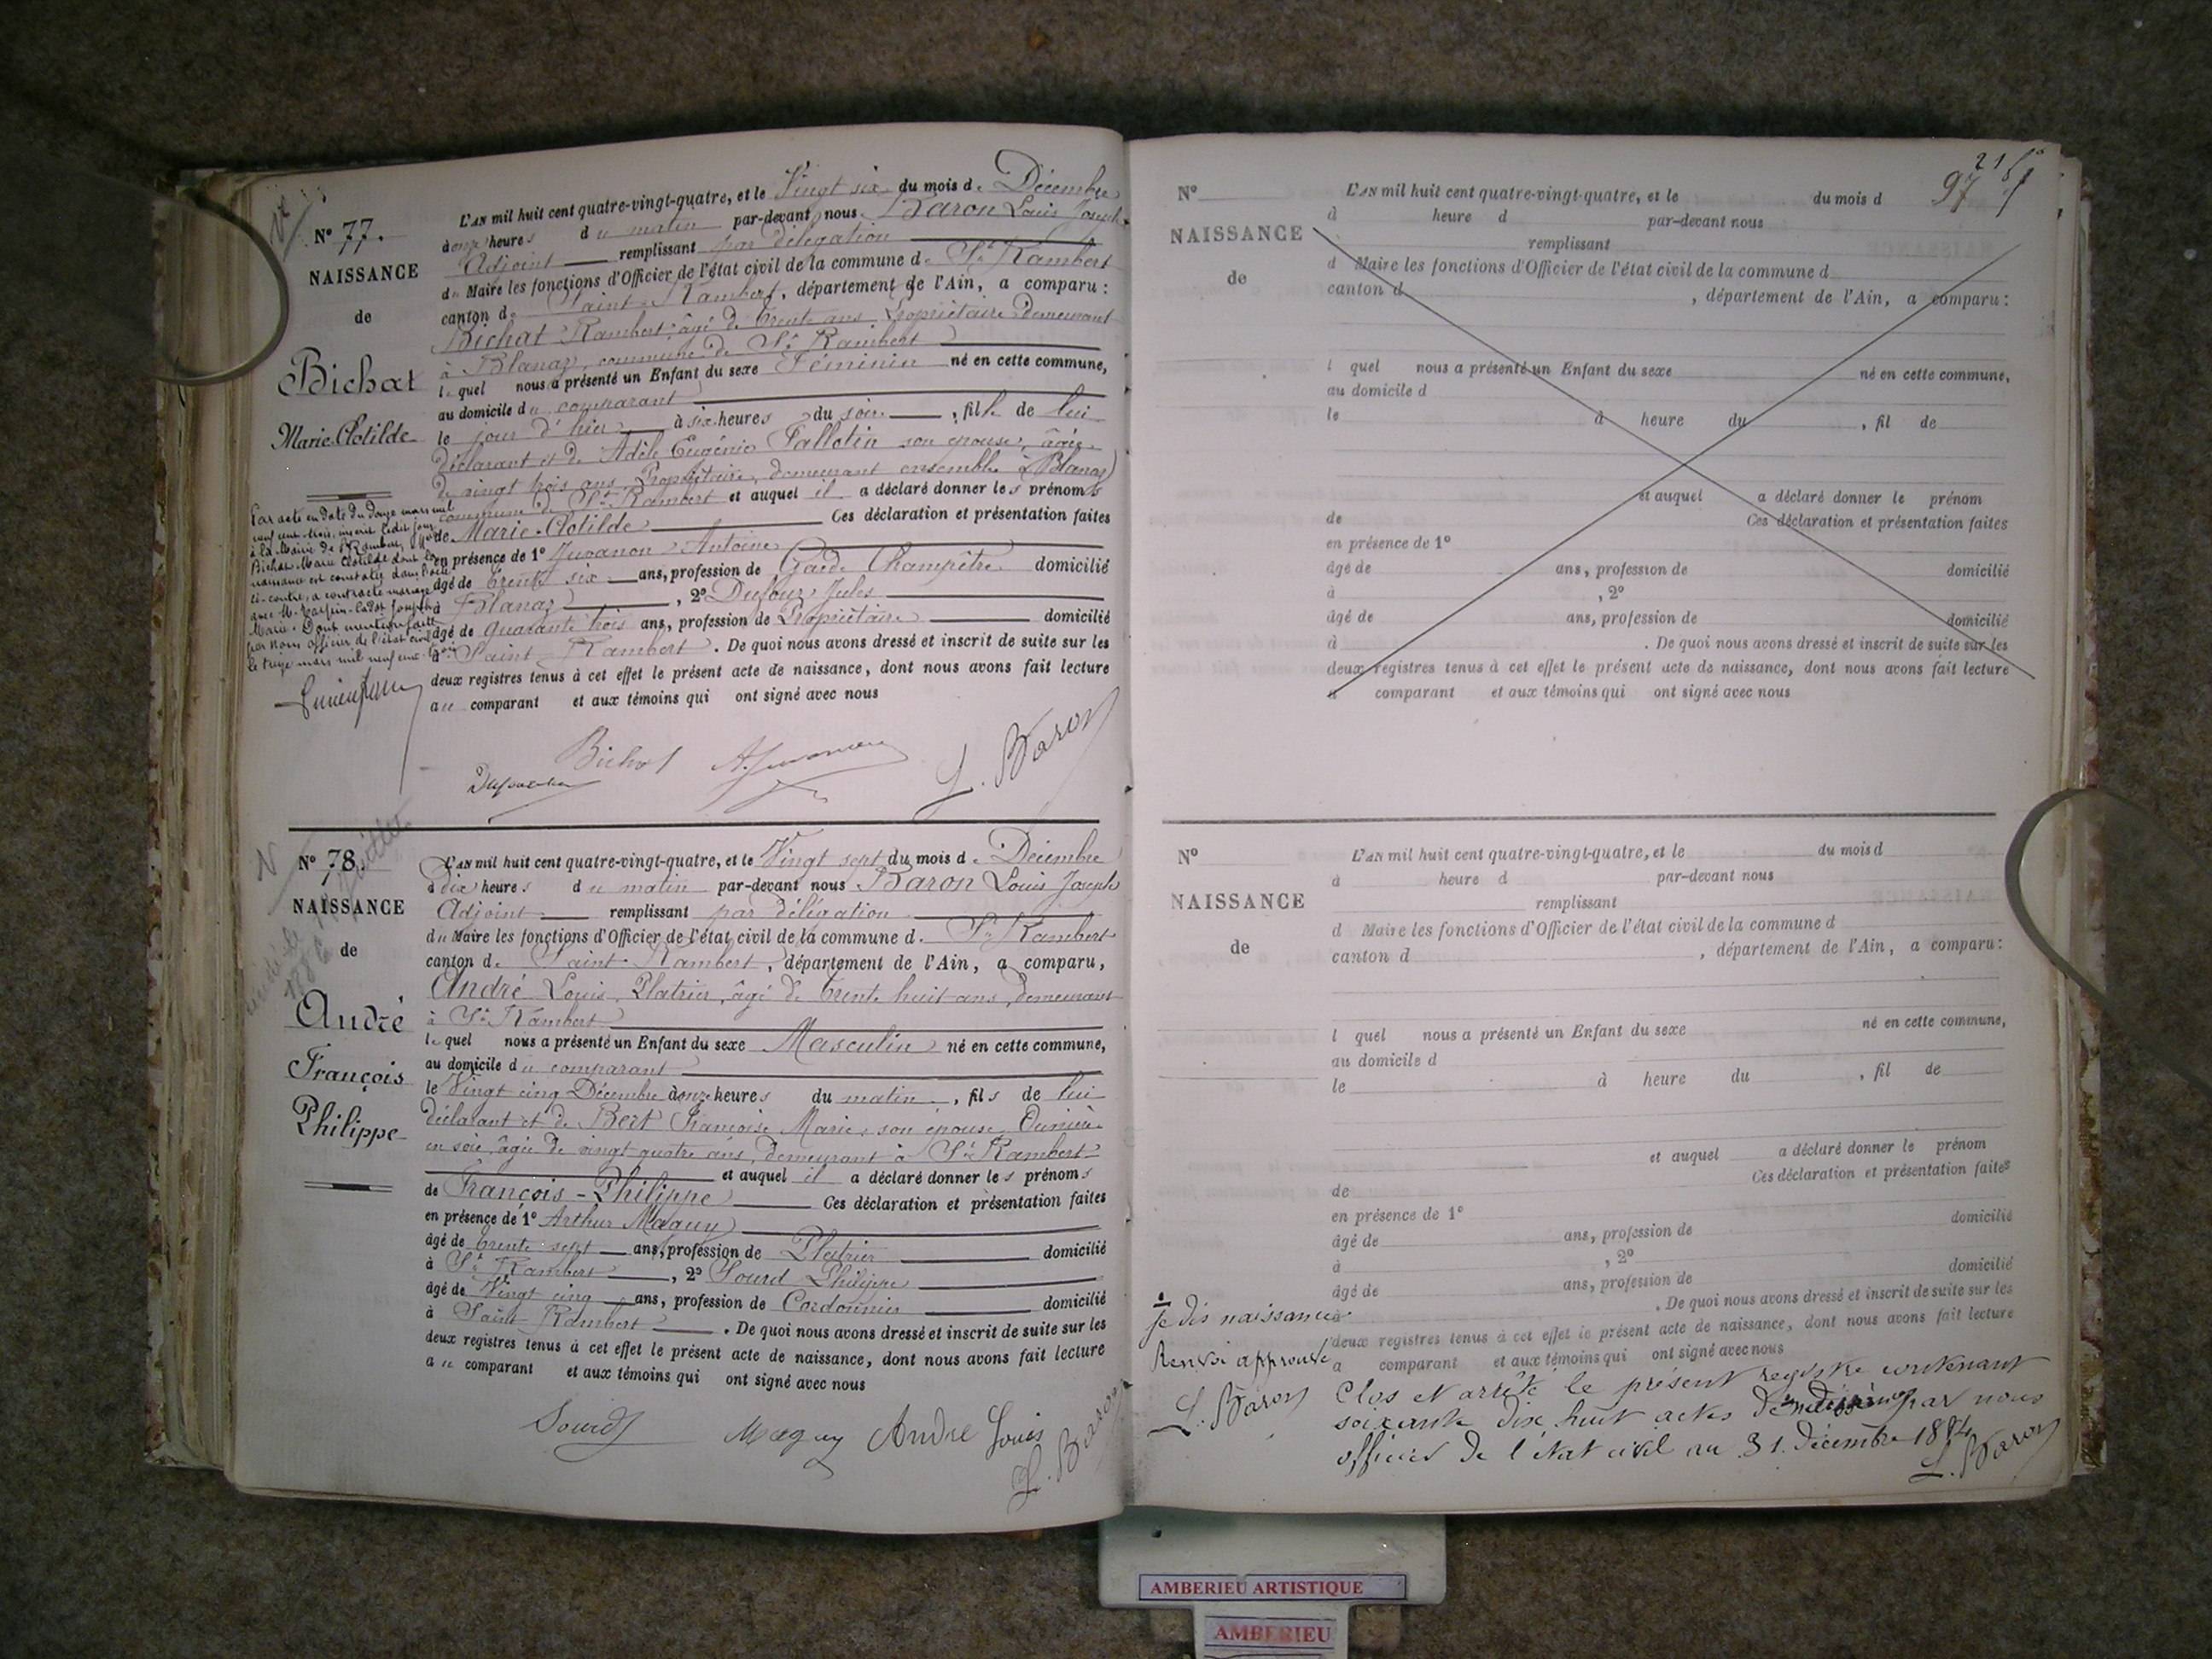 N° 77.
NAISSANCE
de
Bichat
Marie Clotilde
L'AN mil huit cent quatre-vingt-quatre, et le Vingt six du mois de Décembre
à onze heures du matin par-devant nous Baron Louis Joseph
Adjoint remplissant par délégation
du Maire les fonctions d'Officier de l'état civil de la commune de St Rambert
canton de Saint-Rambert, département de l'Ain, a comparu :
Bichat Rambert âgé de trente ans Propriétaire demeurant
à Blanaz, commune de St Rambert
lequel nous a présenté un Enfant du sexe Féminin né en cette commune,
au domicile du comparant
le jour d'hier à six heures du soir, fille de lui
déclarant et de Adèle Eugénie Tallotin son épouse, âgée
de vingt trois ans Propriétaire, demeurant ensemble à Blanaz
commune de St Rambert et auquel il a déclaré donner les prénoms
de Marie-Clotilde Ces déclaration et présentation faites
en présence de 1° Juvanon Antoine
âgé de trente six ans, profession de Garde Champêtre domicilié
à Blanaz, 2° Dufour Jules
âgé de quarante trois ans, profession de Propriétaire domicilié
à Saint-Rambert. De quoi nous avons dressé et inscrit de suite sur les
deux registres tenus à cet effet le présent acte de naissance, dont nous avons fait lecture
au comparant et aux témoins qui ont signé avec nous
Par acte en date du douze mars mil
neuf cent trois, inscrit ledit jour
à la Mairie de St Rambert,
Bichat Marie Clotilde dont la
naissance est constatée dans l'acte
ci-contre, a contracté mariage
avec M. Joseph
Marie. Dont mention faite
par nous officier de l'état civil
le treize mars mil neuf cent trois
Bichat A. Juvanon L. Baron
N° 78.
NAISSANCE
de
André
François
Philippe
L'AN mil huit cent quatre-vingt-quatre, et le Vingt sept du mois de Décembre
à dix heures du matin par-devant nous Baron Louis Joseph
Adjoint remplissant par délégation
du Maire les fonctions d'Officier de l'état civil de la commune de St Rambert
canton de Saint-Rambert, département de l'Ain, a comparu,
André Louis, Platrier, âgé de trente huit ans, demeurant
à St Rambert
lequel nous a présenté un Enfant du sexe Masculin né en cette commune,
au domicile du comparant
le Vingt cinq Décembre à onze heures du matin, fils de lui
déclarant et de Bert Françoise Marie, son épouse, Ouvrière
en soie, âgée de vingt-quatre ans, demeurant à St Rambert
et auquel il a déclaré donner les prénoms
de François-Philippe Ces déclaration et présentation faites
en présence de 1° Arthur Maguy
âgé de trente sept ans, profession de Platrier domicilié
à St Rambert, 2° Sourd Philippe
âgé de Vingt cinq ans, profession de Cordonnier domicilié
à Saint Rambert. De quoi nous avons dressé et inscrit de suite sur les
deux registres tenus à cet effet le présent acte de naissance, dont nous avons fait lecture
au comparant et aux témoins qui ont signé avec nous
Sourd Maguy André Louis L. Baron
97
N°
NAISSANCE
de
L'AN mil huit cent quatre-vingt-quatre, et le du mois d
à heure d par-devant nous
remplissant
d Maire les fonctions d'Officier de l'état civil de la commune d
canton d , département de l'Ain, a comparu :
l quel nous a présenté un Enfant du sexe né en cette commune,
au domicile d
le à heure du , fil de
et auquel a déclaré donner le prénom
de Ces déclaration et présentation faites
en présence de 1°
âgé de ans, profession de domicilié
à , 2°
âgé de ans, profession de domicilié
à . De quoi nous avons dressé et inscrit de suite sur les
deux registres tenus à cet effet le présent acte de naissance, dont nous avons fait lecture
a comparant et aux témoins qui ont signé avec nous
N°
NAISSANCE
de
L'AN mil huit cent quatre-vingt-quatre, et le du mois d
à heure d par-devant nous
remplissant
d Maire les fonctions d'Officier de l'état civil de la commune d
canton d , département de l'Ain, a comparu :
l quel nous a présenté un Enfant du sexe né en cette commune,
au domicile d
le à heure du , fil de
et auquel a déclaré donner le prénom
de Ces déclaration et présentation faites
en présence de 1°
âgé de ans, profession de domicilié
à , 2°
âgé de ans, profession de domicilié
à . De quoi nous avons dressé et inscrit de suite sur les
deux registres tenus à cet effet le présent acte de naissance, dont nous avons fait lecture
a comparant et aux témoins qui ont signé avec nous
je dis naissances
Renvoi approuvé
L. Baron
Clos et arrêté le présent registre contenant
soixante dix huit actes de par nous
officier de l'état civil au 31 décembre 1884
L. Baron
AMBERIEU ARTISTIQUE
AMBERIEU